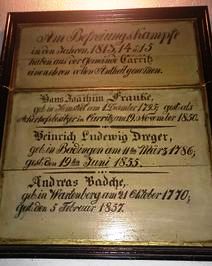 Am Befreiungskampfe
in den Jahren, 1813, 14 u 15
haben aus der Gemeinde Carritz
einen ehren vollen Antheil genommen.
Hans Joachim Franke,
geb. in 1 December 1793; gest. als
in Carritz am 19 November 1850.
Heinrich Ludewig Dreger,
geb. in am 11ten März 1786;
gest. den 19ten Juni 1855.
Andreas Badche,
geb. in Wartenberg am 21 Oktober 1770;
gest. den 5 Februar 1837.